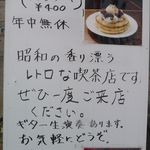 ¥400
年中無休
昭和の香り漂う
レトロな喫茶店です
ぜひ一度ご来店
ください。
ギター生演奏あります。
お気軽にどうぞ。